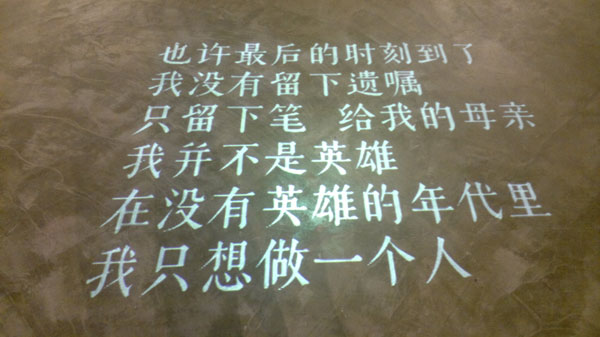 也许最后的时刻到了
我没有留下遗嘱
只留下笔 给我的母亲
我并不是英雄
在没有英雄的年代里
我只想做一个人